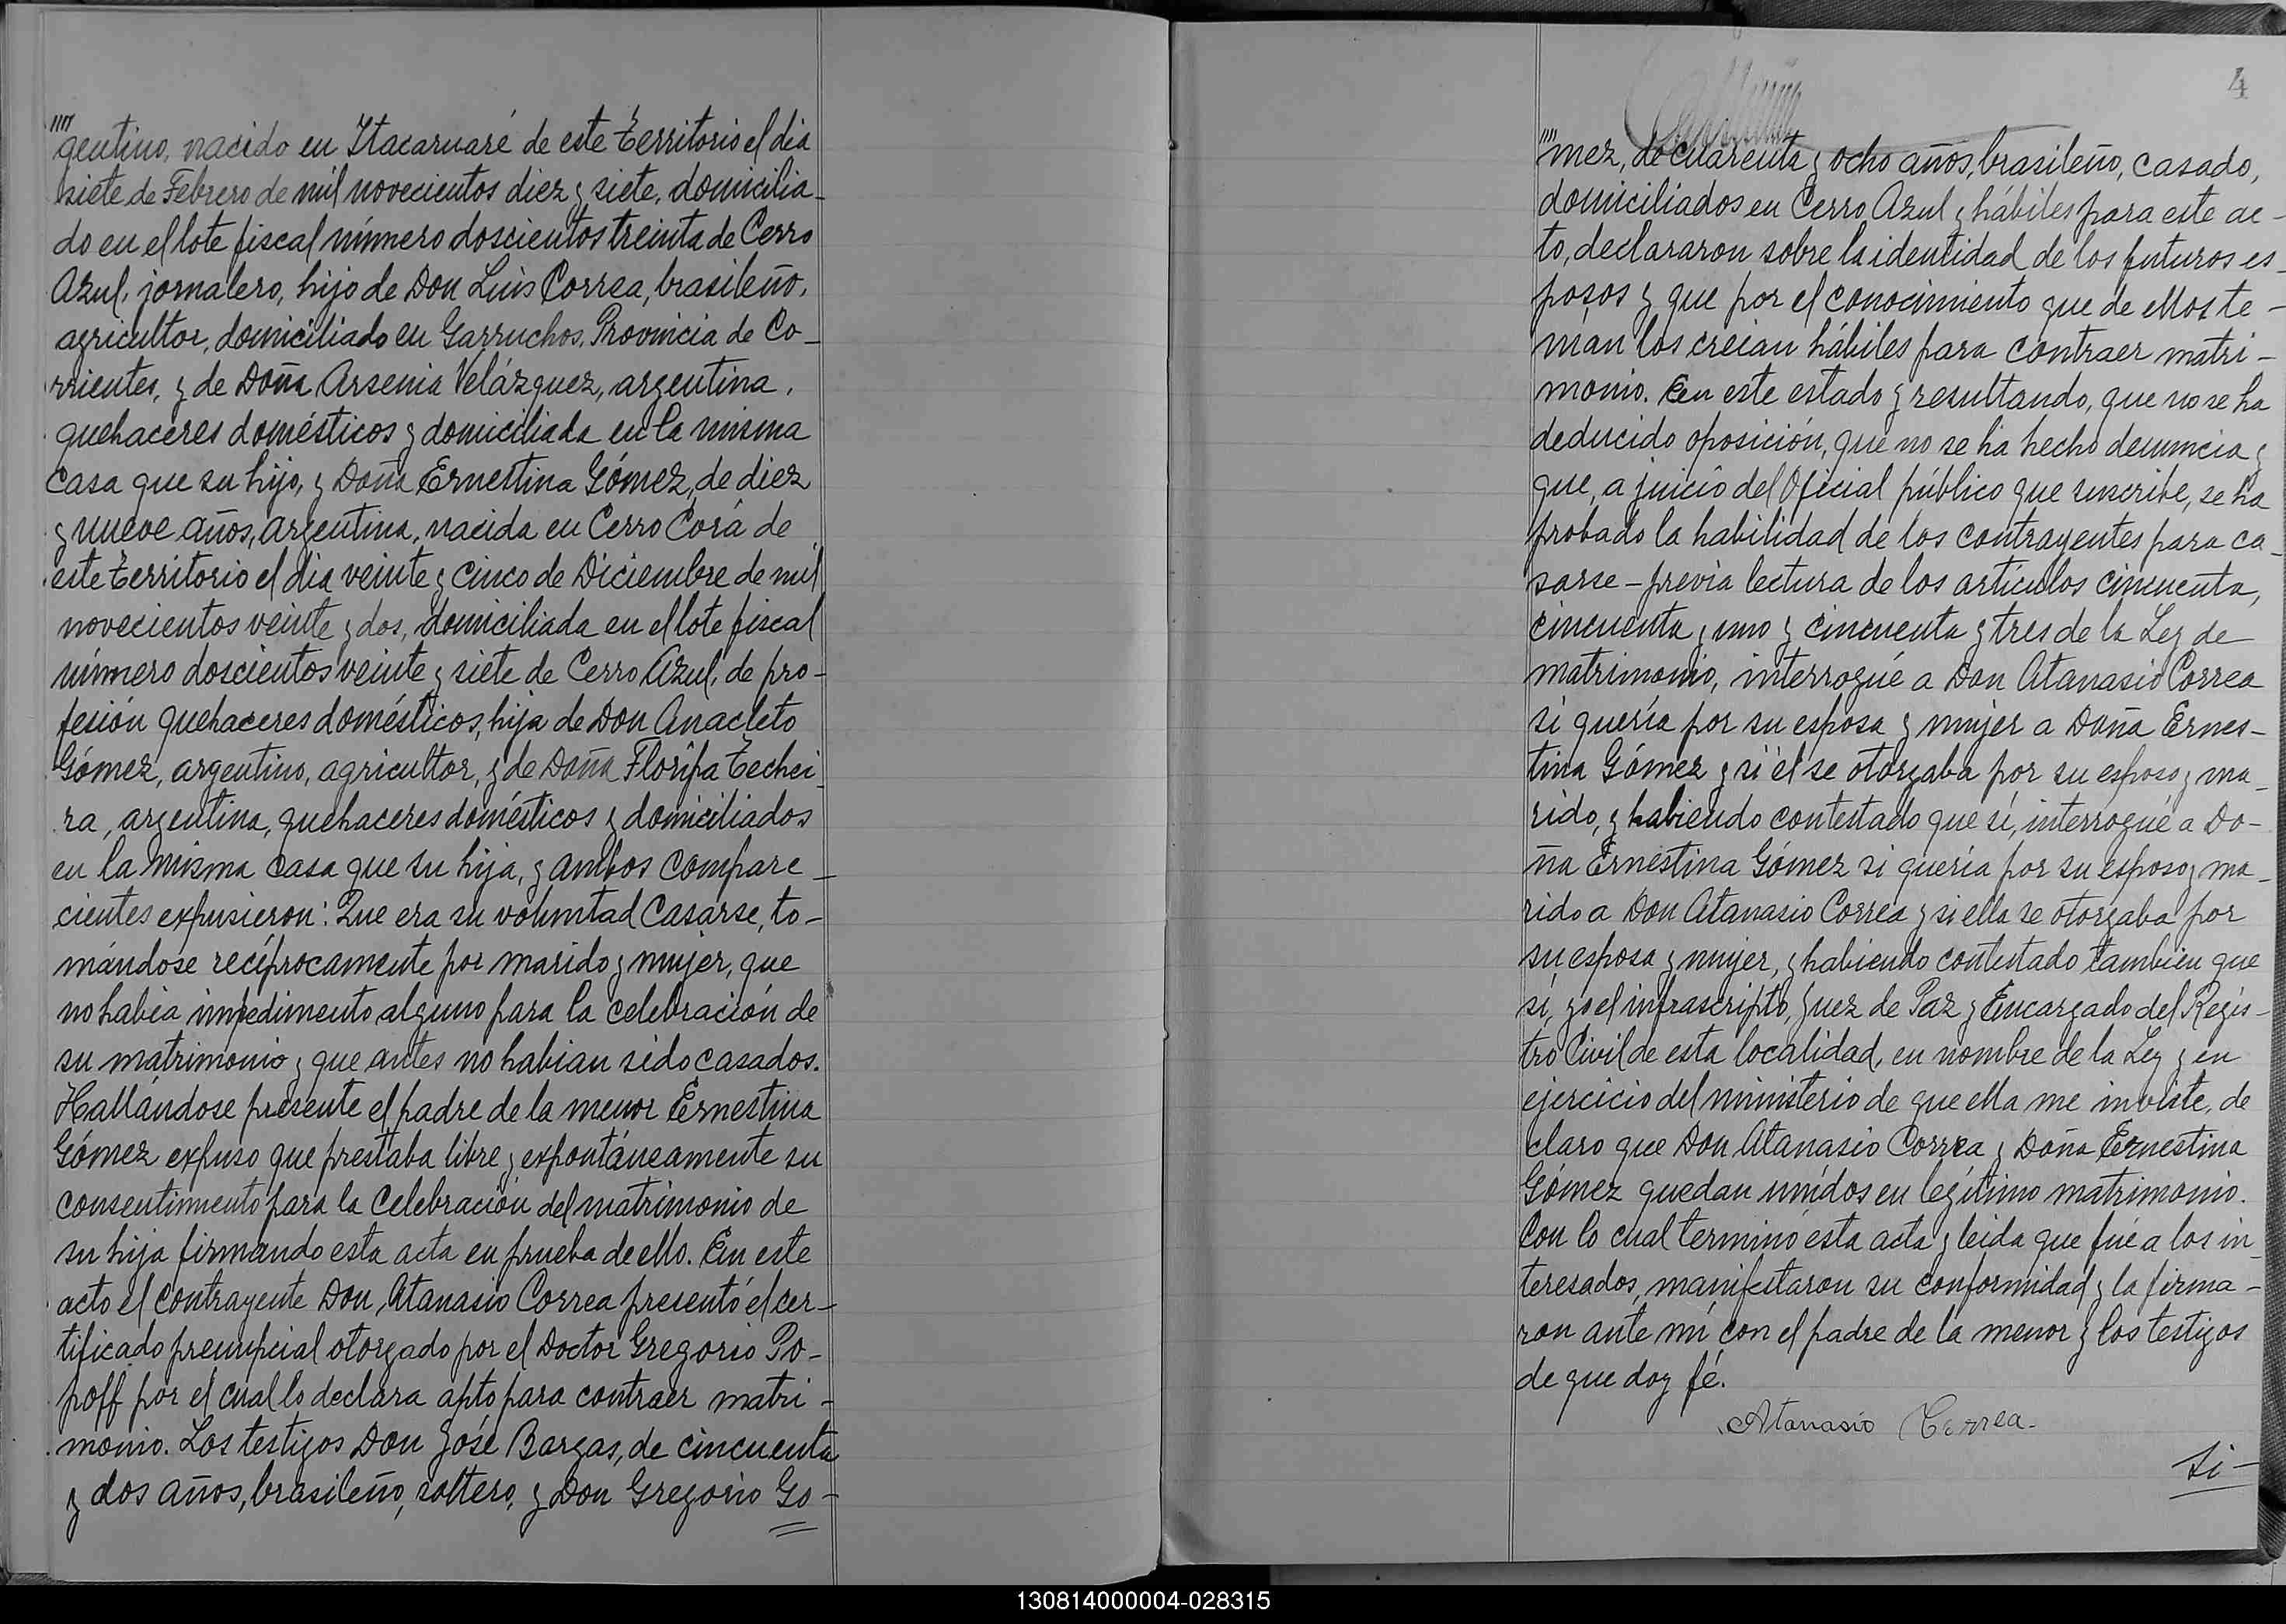 "" gentino, nacido en Itacaruaré de este Territorio el dia
siete de Febrero de mil novecientos diez y siete, domicilia-
do en el lote fiscal número doscientos treinta de Cerro
Azul, jornalero, hijo de Don Luis Correa, brasileño,
agricultor, domiciliado en Garruchos, Provincia de Co-
rrientes, y de Doña Arsenia Velázquez, argentina,
quehaceres domésticos y domiciliada en la misma
casa que su hijo, y Doña Ernestina Gómez, de diez
y nueve años, argentina, nacida en Cerro Corá de
este Territorio el dia veinte y cinco de Diciembre de mil
novecientos veinte y dos, domiciliada en el lote fiscal
número doscientos veinte y siete de Cerro Azul, de pro-
fesión quehaceres domésticos, hija de Don Anacleto
Gómez, argentino, agricultor, y de Doña Floripa Techei-
ra, argentina, quehaceres domésticos y domiciliados
en la misma casa que su hija, y ambos compare-
cientes expusieron: Que era su voluntad casarse, to-
mándose recíprocamente por marido y mujer, que
no habia impedimento alguno para la celebración de
su matrimonio y que antes no habian sido casados.
Hallándose presente el padre de la menor Ernestina
Gómez expuso que prestaba libre y expontáneamente su
consentimiento para la celebración del matrimonio de
su hija firmando esta acta en prueba de ello. En este
acto el contrayente Don Atanasio Correa presentó el cer-
tificado prenupcial otorgado por el Doctor Gregorio Po-
poff por el cual lo declara apto para contraer matri-
monio. Los testigos Don José Bargas, de cincuenta
y dos años, brasileño, soltero, y Don Gregorio Gó-
4
"" mez, de cuarenta y ocho años, brasileño, casado,
domiciliados en Cerro Azul y hábiles para este ac-
to, declararon sobre la identidad de los futuros es-
posos y que por el conocimiento que de ellos te-
nian los creian hábiles para contraer matri-
monio. En este estado y resultando, que no se ha
deducido oposición, que no se ha hecho denuncia y
que, a juicio del Oficial público que suscribe, se ha
probado la habilidad de los contrayentes para ca-
sarse - previa lectura de los artículos cincuenta,
cincuenta y uno y cincuenta y tres de la Ley de
matrimonio, interrogué a Don Atanasio Correa
si quería por su esposa y mujer a Doña Ernes-
tina Gómez y si él se otorgaba por su esposo y ma-
rido, y habiendo contestado que sí, interrogué a Do-
ña Ernestina Gómez si quería por su esposo y ma-
rido a Don Atanasio Correa y si ella se otorgaba por
su esposa y mujer, y habiendo contestado tambien que
sí, yo el infrascripto, Juez de Paz y Encargado del Regis-
tro Civil de esta localidad, en nombre de la Ley y en
ejercicio del ministerio de que ella me inviste, de
claro que Don Atanasio Correa y Doña Ernestina
Gómez quedan unidos en legítimo matrimonio.
Con lo cual terminó esta acta y leida que fué a los in-
teresados, manifestaron su conformidad y la firma-
ron ante mí con el padre de la menor y los testigos
de que doy fé.
Atanasio Correa.
Si-
130814000004-028315